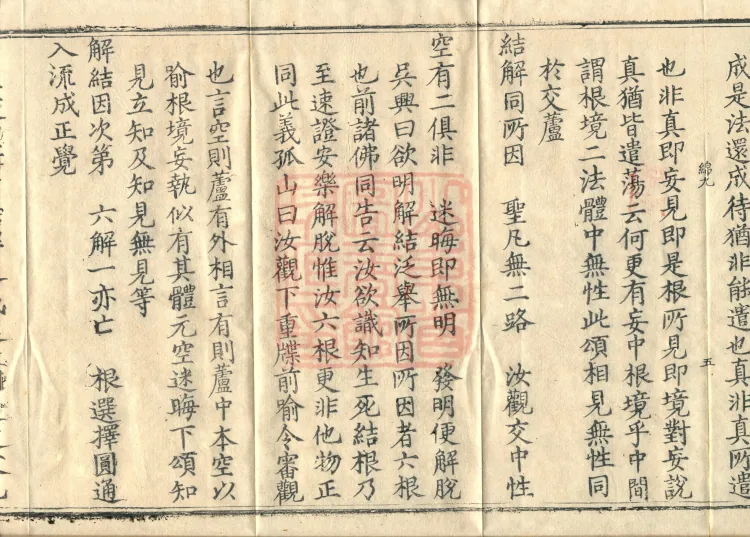 成是法還成待猶非能遣也真非真所遣
綿九
五
也非真即妄見即是根所見即境對妄說
真猶皆遣蕩云何更有妄中根境乎中間
謂根境二法體中無性此頌相見無性同
於交蘆
結解同所因 聖凡無二路 汝觀交中性
空有二俱非 迷晦即無明 發明便解脫
吳興曰欲明解結泛舉所因所因者六根
也前諸佛同告云汝欲識知生死結根乃
至速證安樂解脫惟汝六根更非他物正
同此義孤山曰汝觀下重牒前喻令審觀
也言空則蘆有外相言有則蘆中本空以
喻根境妄執似有其體元空迷晦下頌知
見立知及知見無見等
解結因次第 六解一亦亡 根選擇圓通
入流成正覺